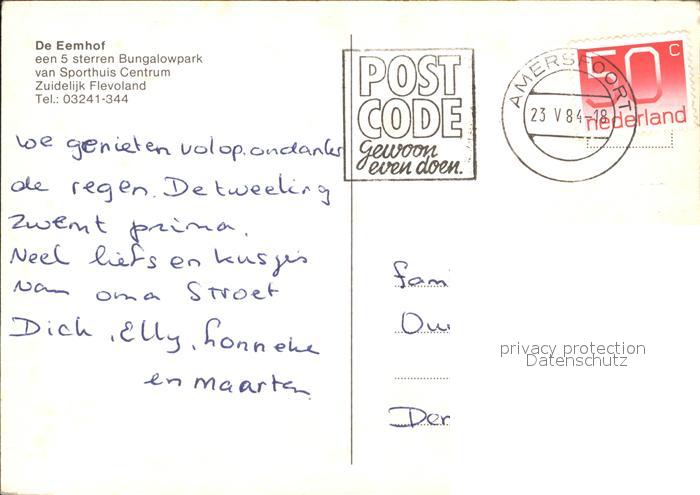 De Eemhof
een 5 sterren Bungalowpark
van Sporthuis Centrum
Zuidelijk Flevoland
Tel.: 03241-344
POST
CODE
Gewoon
even doen.
AMERSFOORT
23 V 84-18
50 C
nederland
we genieten volop. ondanks
de regen. De tweeling
zwemt prima.
Veel liefs en kusjes
van oma Stroet
Dick, Elly, Lonneke
en Maarten.
fam
Ou
Der
privacy protection
Datenschutz